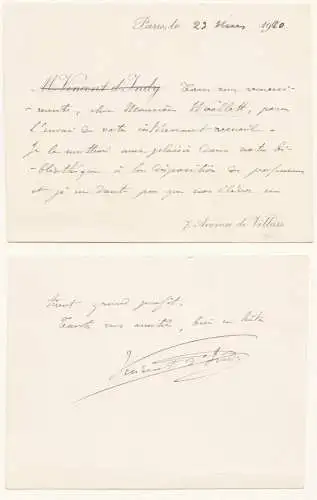 Paris, le 22 Mars 1920
M. Vincent d'Indy Tous mes remerci-
ments, cher Monsieur, pour
l'envoi de votre intéressant recueil.
Je le mettrai avec plaisir dans notre bi-
bliothèque à la disposition des professeurs
et je ne doute pas que nos élèves en
7, Avenue de Villars
tirent grand profit.
Toute mon amitié, bien en hâte
Vincent d'Indy